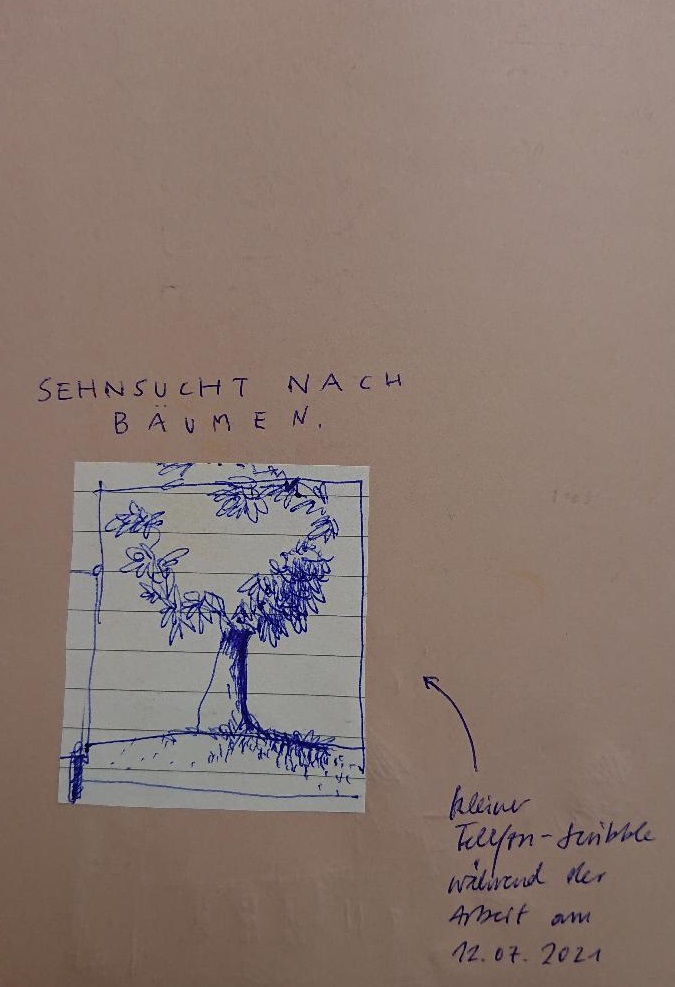 SEHNSUCHT NACH
BÄUMEN.
kleiner
Telefon-Scribble
während der
Arbeit am
12.07.2021